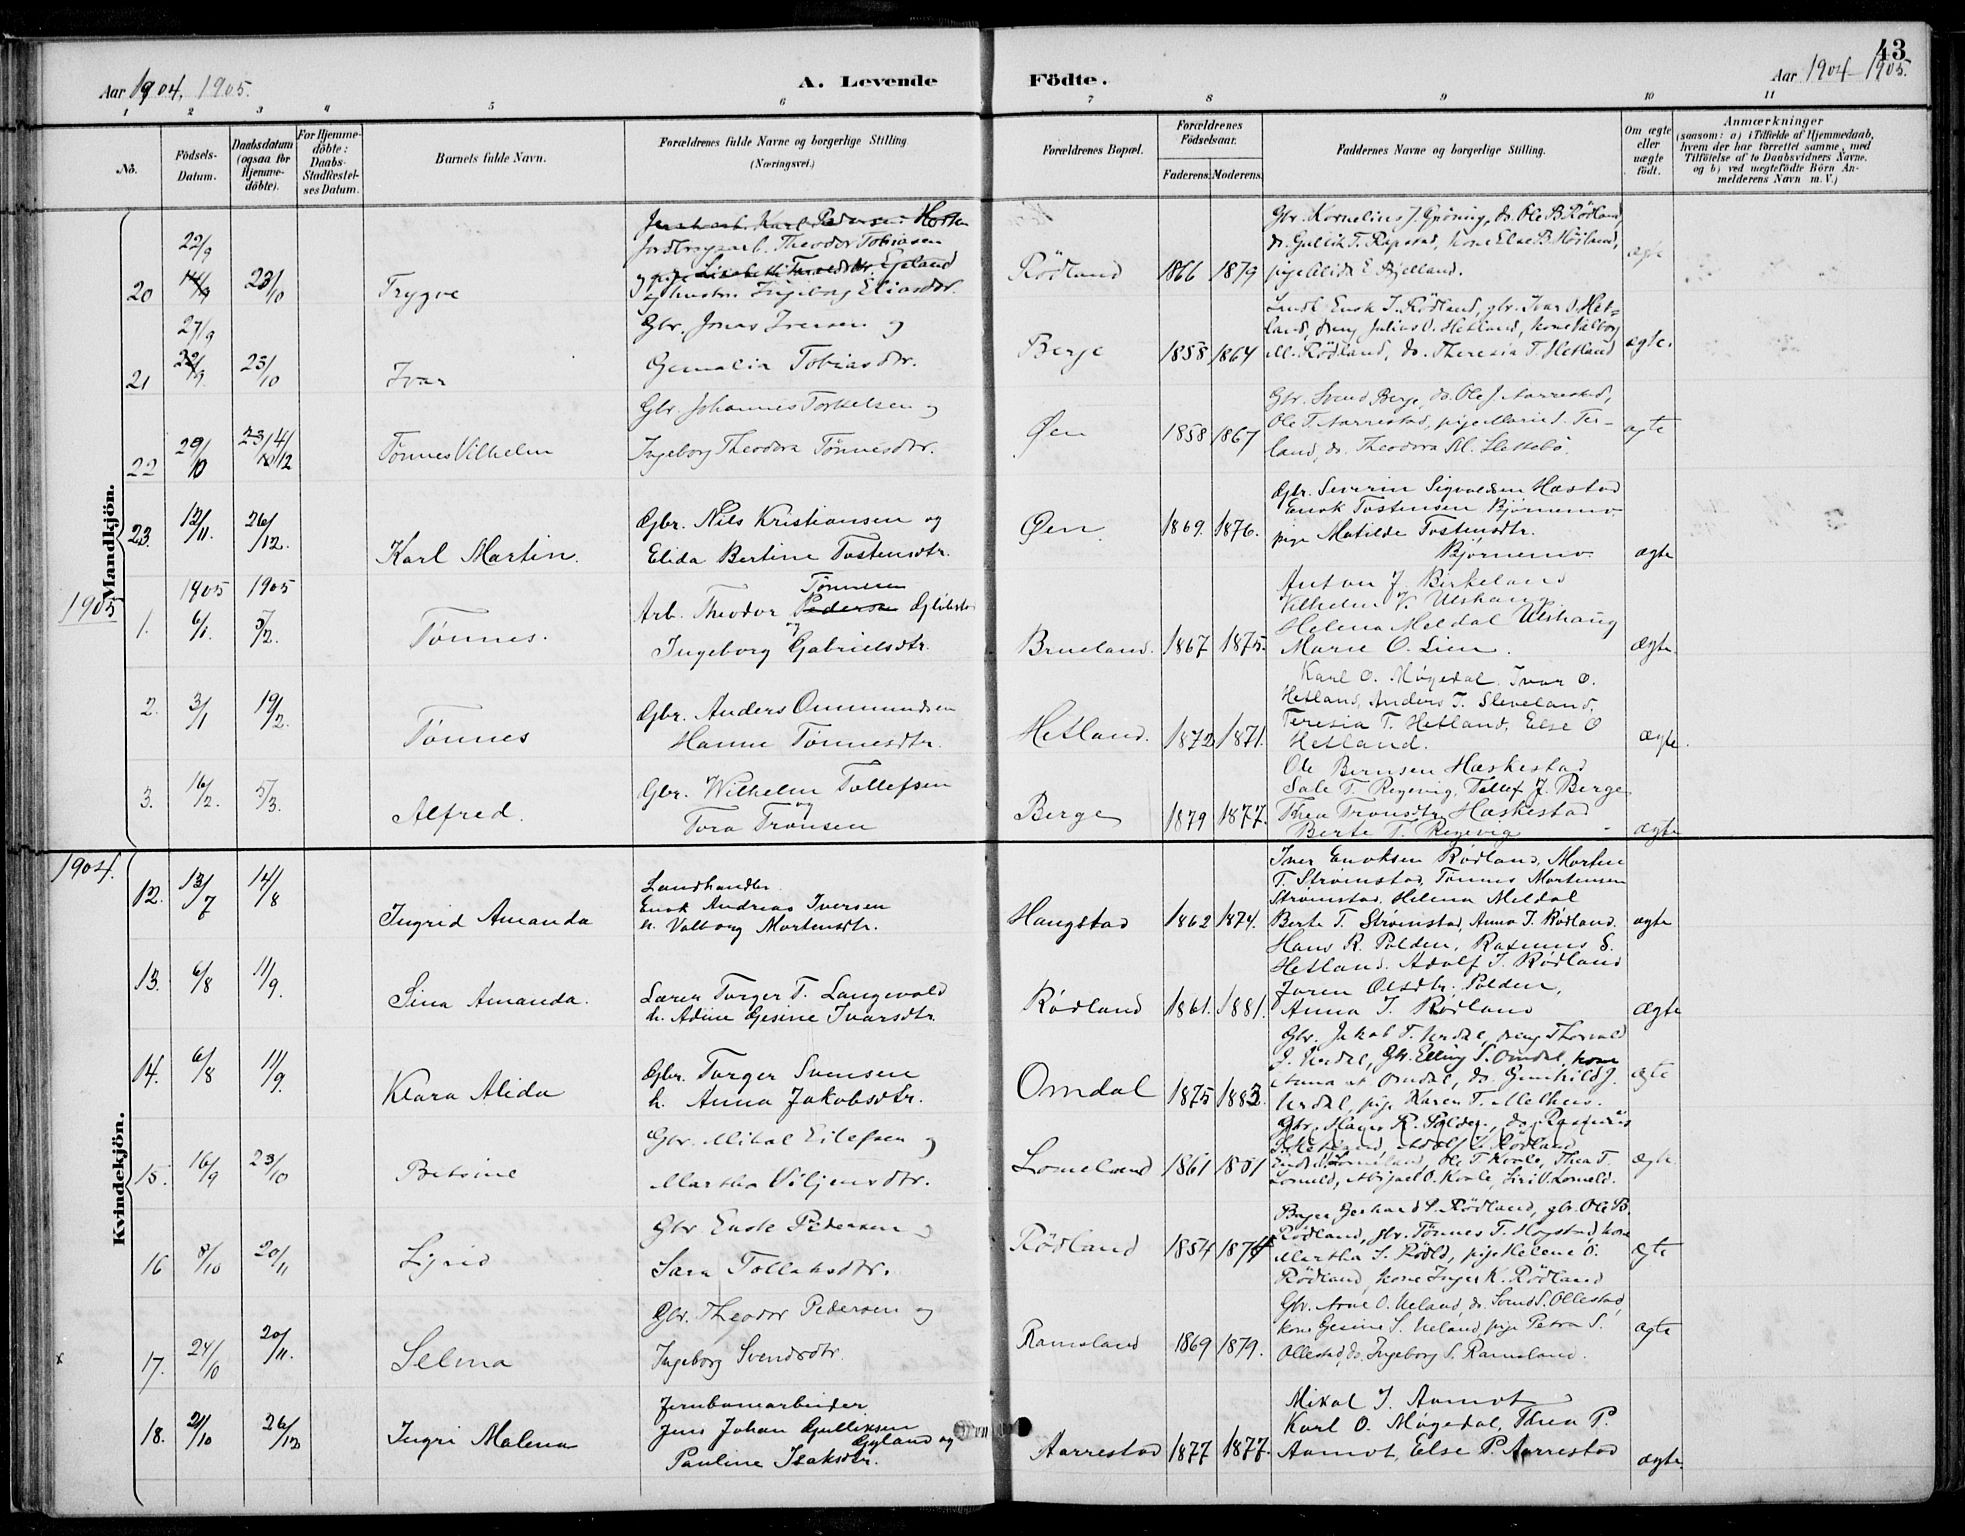 43
Aar 1904, 1905.
A. Levende Födte.
Aar 1904-1905.
1 2 3 4 5 6 7 8 9 10 11
No.
Födsels-Datum.
Daabsdatum (ogsaa for Hjemme-döbte).
For Hjemme-döbte: Daabs-Stadfæstel-ses Datum.
Barnets fulde Navn.
Forældrenes fulde Navne og borgerlige Stilling
(Næringsvei.)
Forældrenes Bopæl.
Forældrenes Födselsaar.
Faderens. Moderens.
Faddernes Navne og borgerlige Stilling.
Om ægte eller uægte födt.
Anmærkninger
(saasom: a) i Tilfælde af Hjemmedaab,
hvem der har forrettet samme, med
Tilföielse af to Daabsvidners Navne,
og b) ved uægtefödte Börn An-
melderens Navn m. V.)
Mandkjön.
20 22/9 23/10 Trygve
Theodor Tobiasen
og hustru Ingeborg Eliasdtr.
Rödland 1866 1879
Gbr. Kornelius J. Gröning, do. Ole B. Rödland,
do. Gullik T. Rapstad, kone Else B. Höiland,
pige Alida E. Bjelland.
ægte
21 27/9 23/10 Ivar
Gbr. Jonas Iversen og
Gemalia Tobiasdtr.
Berge 1858 1864
Landh. Enok I. Rödland, gbr. Ivar O. Het-
land, dreng Julius O. Hetland, kone Valborg
M. Rödland, do. Theresia T. Hetland
ægte.
22 29/10 4/12 Tönnes Vilhelm
Gbr. Johannes Torkelsen og
Ingeborg Theodora Tönnesdtr.
Øen 1858 1867
Gbr. Svend Berge, do. Ole J. Aarrestad,
Ole T. Aarrestad, pige Marie
land, do. Theodora M.
ægte
23. 12/11. 26/12. Karl Martin.
Gbr. Nils Kristiansen og
Elida Bertine Tostensdtr.
Øen 1869. 1876.
Gbr. Severin Sigvaldsen Hæstad
Enok Tostensen Bjørnemo
pige Matilde Tostensdtr.
Bjørnemo
ægte
1905
1905 1905
1. 6/1. 5/2. Tønnes.
Arb. Theodor Pedersen Tønnesen
og
Ingeborg Gabrielsdtr.
Brueland. 1867 1875.
Anton J. Birkeland
Vilhelm V. Ulshaug
Helena Meldal Ulshaug
Marie O. Lien.
ægte
2. 3/1 19/2. Tønnes
Gbr. Anders Ommundsen
Hanne Tønnesdtr.
Hetland. 1872 1871.
Karl O. Møgedal. Ivar O.
Hetland, Anders T. Sleveland.
Teresia T. Hetland, Else O
Hetland.
ægte.
3. 16/2. 5/3. Alfred.
Gbr. Wilhelm Tollefsen
og
Tora Tronsen
Berge 1879 1877.
Ole Berntsen Hæskestad
Sale T. Regevig, Tollef J. Berge
Thea Tronsdtr. Hæskestad
Berte T. Regevig
ægte
1904.
Kvindekjön.
12. 13/7 14/8 Ingrid Amanda
Landhandler.
Enok Andreas Iversen
h. Valborg Mortensdtr.
Haugstad 1862 1874.
Iver Enoksen Rødland, Morten
T. Strømstad, Tønnes Mortensen
Strømstad, Helena Meldal
Berte T. Strømstad, Anna I. Rødland.
ægte
13. 6/8 11/9. Sina Amanda.
Lærer Torger T. Langevald
h. Adine Gesine Ivarsdtr.
Rødland 1861. 1881.
Hans R. Polden, Rasmus S.
Hetland. Adolf I. Rødland
Joren Olsdtr. Polden,
Anna I. Rødland
ægte
14. 6/8 11/9. Klara Alida
Gbr. Torger Svensen
h. Anna Jakobsdtr.
Omdal 1875 1883.
Gbr. Jakob T. Urdal, dreng Thorvald
J. Urdal, Gbr. Elling S. Omdal, kone
Anna Omdal, do. Gunhild J.
Urdal, pige Karen T. Melhus.
ægte
15. 16/9 23/10 Betsine
Gbr. Mikal Eilefsen og
Martha Viljensdtr.
Lomeland 1861
Gbr. Hans R. Polden, do. Rasmus
Hetland, Adolf I. Rödland,
Ole T. Thea T.
Siri
ægte
16 8/10 20/11 Sigrid
Gbr Enok Pedersen og
Sara Tollaksdtr.
Rödland 1854 1874
Gerhard S. Rödland, gbr. Ole B.
Rödland, gbr. Tönnes T. kone
Martha S. Rödld, pige Helene O.
Rödland, kone Inger K. Rödland
ægte
17. 24/10 20/11. Selma
Gbr. Theodor Pedersen og
Ingeborg Svendsdtr.
Ramsland 1869 1879.
Gbr. Arne O. Ueland, do. Svend S. Ollestad,
kone Gesine S. Ueland, pige Petra S.
Ollestad, do. Ingeborg S. Ramsland.
ægte
18. 21/10 26/12 Ingri Malena
Jernbanearbeider
Jens Johan Gulliksen
Gyland og
Pauline Isaksdtr.
Aarrestad 1877 1877.
Mikal I. Aamot
Karl O. Møgedal, Thea P.
Aamot, Else P. Aarrestad
ægte.